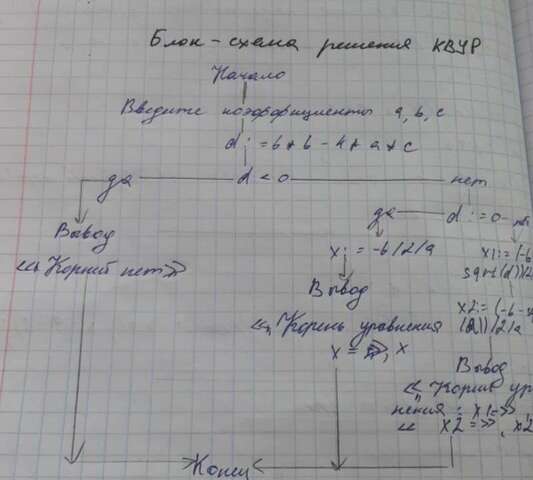 Блок-схема решения КВУР
Начало
Введите коэффициенты a, b, c
d := b * b - 4 * a * c
да d < 0 нет
Вывод
«Корней нет»
да d := 0
x := -b/2/a
Вывод
«Корень уравнения
x = », x
x1 := (-b
sqrt(d))/2
x2 := (-b -
/2/a
Вывод
«Корни ур
нения: x1 = »
« x2 = », x2
Конец